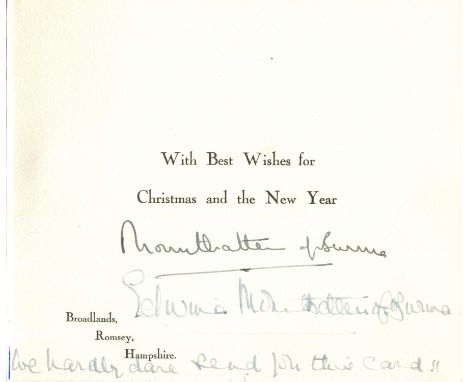 With Best Wishes for
Christmas and the New Year
Mountbatten of Burma
Edwina Mountbatten of Burma
Broadlands,
Romsey,
Hampshire.
We hardly dare send you this card!!